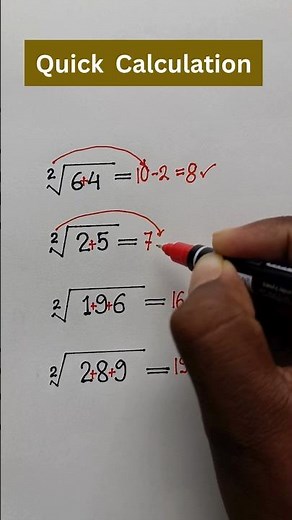 Quick Calculation
²√6+4 = 10-2=8✓
²√2+5 = 7
²√1+9+6 = 16
²√2+8+9 =